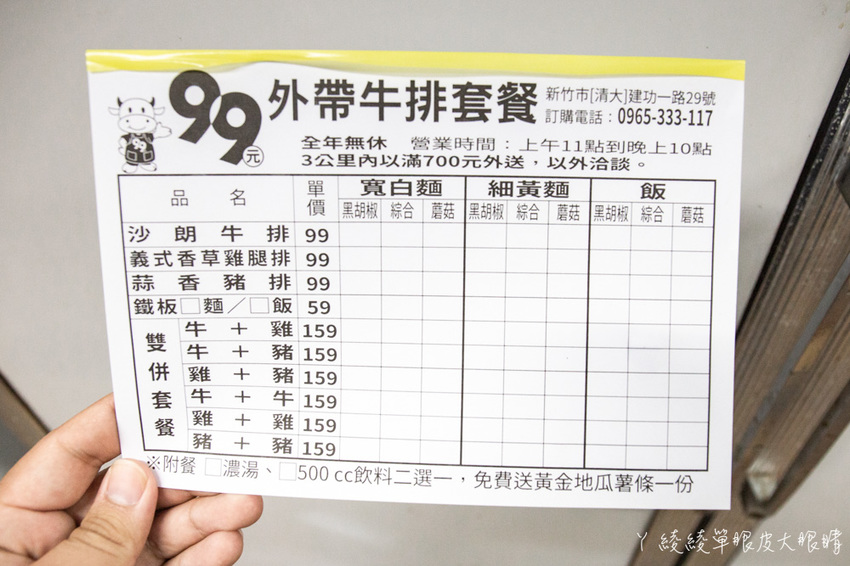 99元 外帶牛排套餐 新竹市[清大]建功一路29號
訂購電話：0965-333-117
全年無休 營業時間：上午11點到晚上10點
3公里內以滿700元外送，以外洽談。
99
品名 單價 寬白麵 細黃麵 飯
黑胡椒 綜合 蘑菇 黑胡椒 綜合 蘑菇 黑胡椒 綜合 蘑菇
沙朗牛排 99
義式香草雞腿排 99
蒜香豬排 99
鐵板□麵／□飯 59
雙併套餐
牛＋雞 159
牛＋豬 159
雞＋豬 159
牛＋牛 159
雞＋雞 159
豬＋豬 159
※附餐 □濃湯、□500 cc飲料二選一，免費送黃金地瓜薯條一份
ㄚ綾綾單眼皮大眼睛